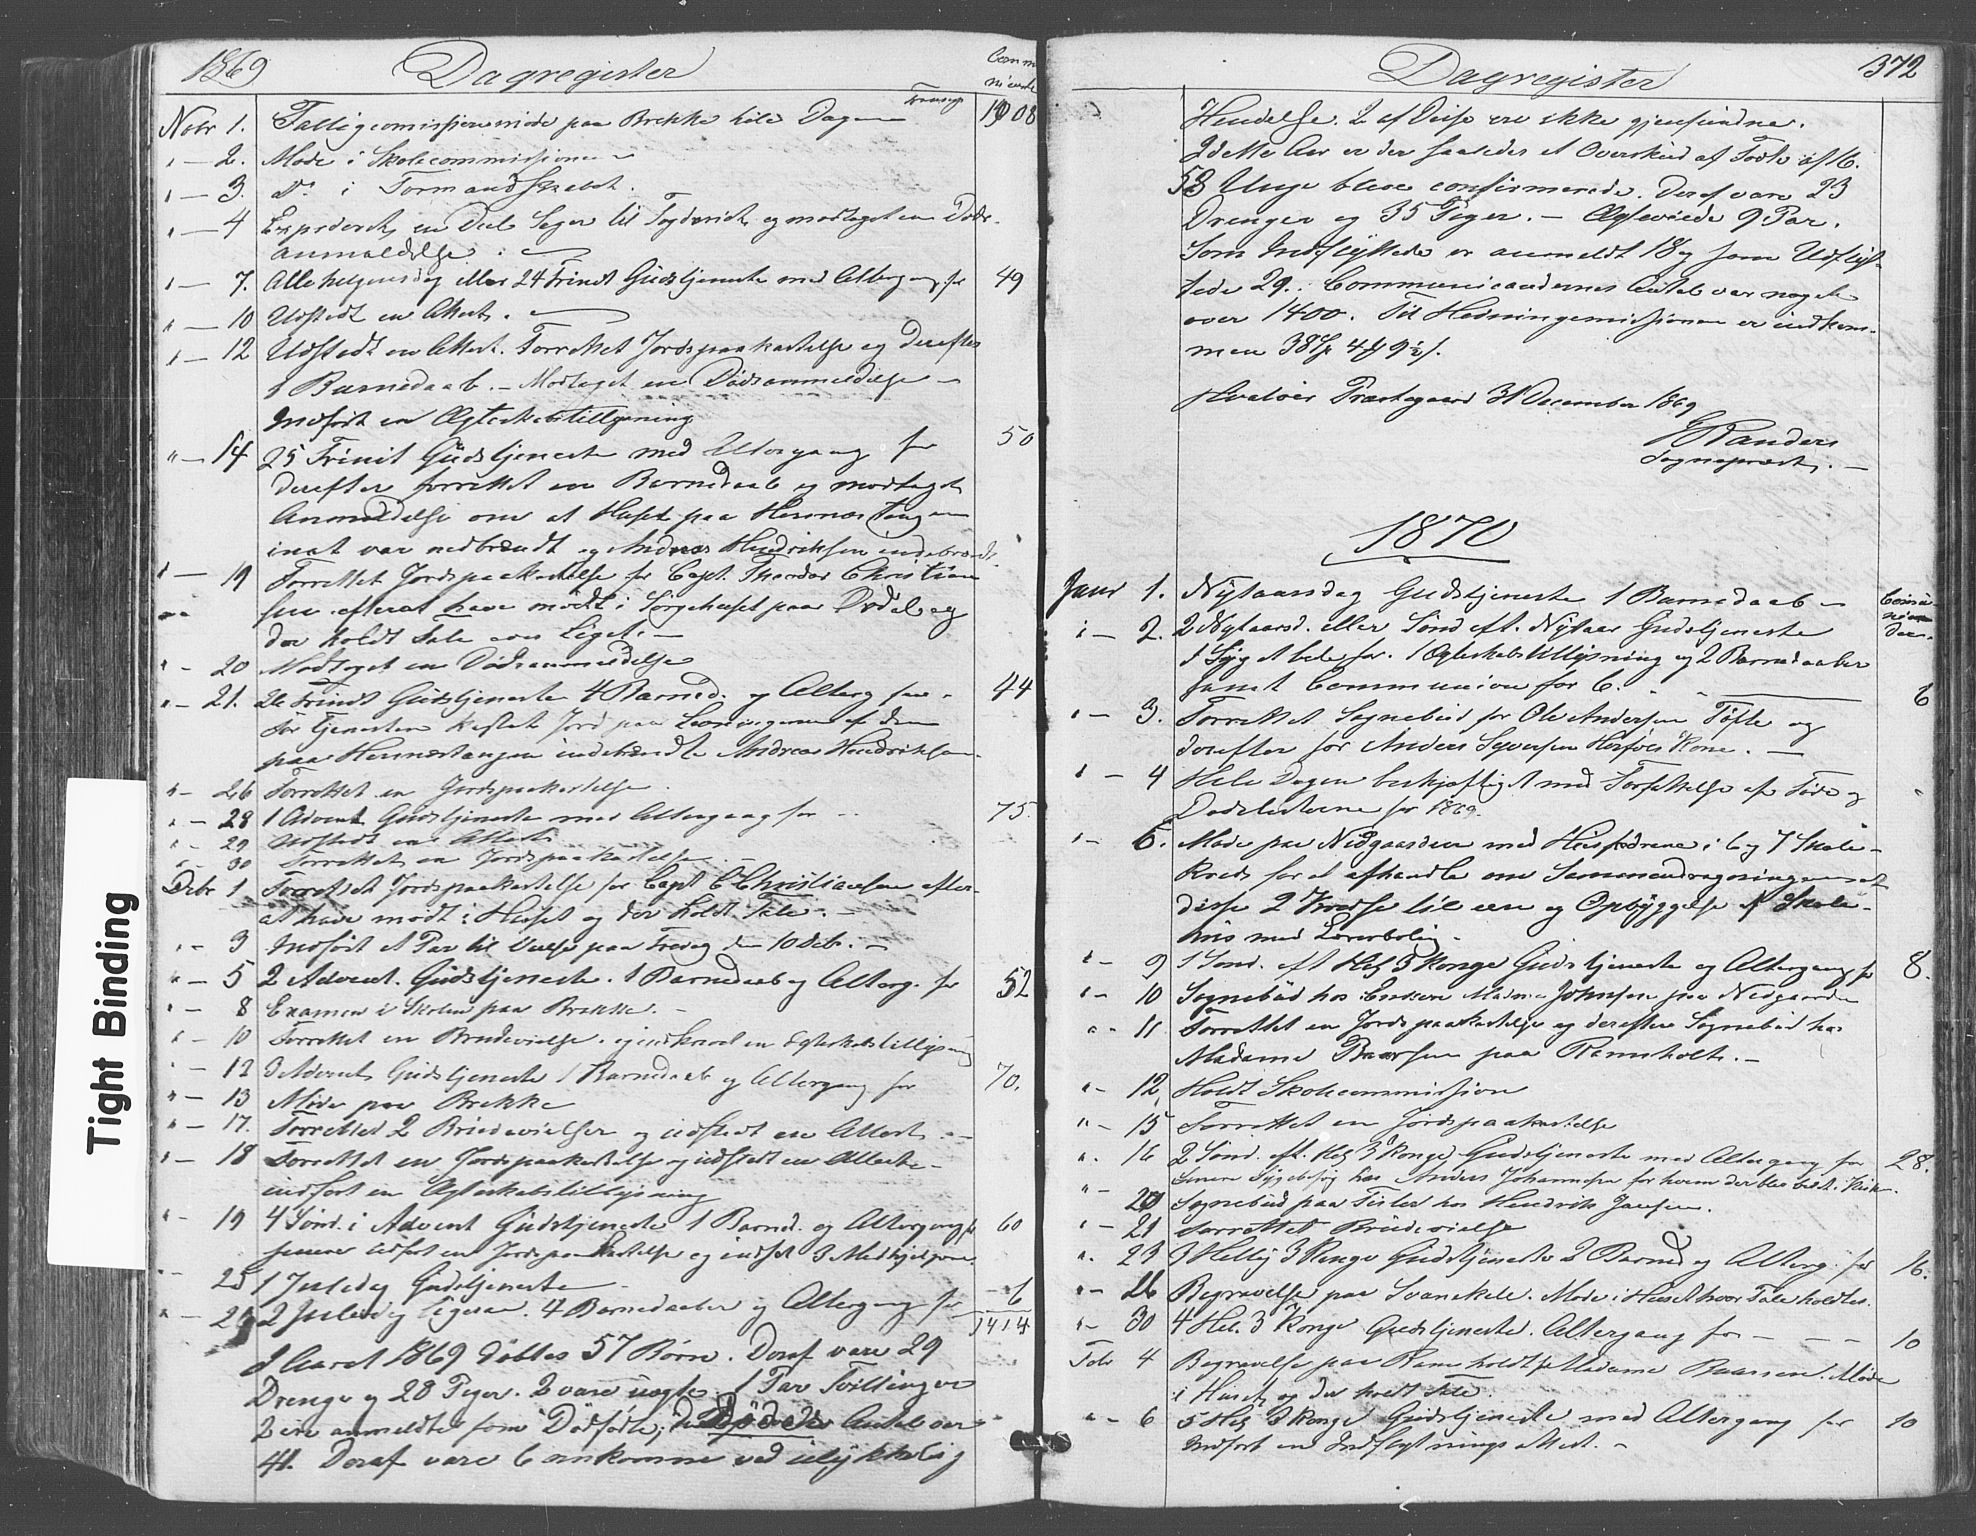 1869 Dagregister Commu
nicerte
Transp. 1008
Nobr 1. Fattigcommissionsmøde paa Brekke hele Dagen
" — 2. Møde i Skolecommissionen
" — 3. Do i Formandskabet.
" — 4 Expederet en Deel Sager til og modtaget en Døds-
anmeldelse.
" — 7. Allehelgensdag eller 24 Trinit Gudstjeneste med Alterg. for 49
" — 10 Udstedt en Attest.
" — 12 Udstedt en Attest. Forrettet Jordspaakastelse og derefter
1 Barnedaab. — Modtaget en Dødsanmeldelse —
Indført en Ægteskabstillysning
" — 14 25 Trinit Gudstjeneste med Altergang for 50
derefter forrettet en Barnedaab og modtaget
Anmeldelse om at Huset paa Hernæs Tangen
inat var nedbrændt og Andreas Hendriksen indebrændt.
" — 19 Forrettet Jordspaakastelse for Capt. Theodor Christian
sen efterat have mødt i Sørgehuset paa Dødel og
der holdt Tale over Liget. —
" — 20 Modtaget en Dødsanmeldelse
" — 21. 26 Trinit Gudstjeneste 4 Barned. og Alterg for 44
Før Tjenesten kastet Jord paa Levningerne af den
paa Hernæstangen indebrændte Andreas Hendriksen
" — 26 Forrettet en Jordspaakastelse.
" — 28 1 Advent Gudstjeneste med Altergang for 75.
" — 29 Udstedt en Attest
" 30 Forrettet en Jordspaakastelse
Debr 1 Forrettet Jordspaakastelse for Capt C Christiansen efter-
at have mødt i Huset og der holdt Tale. —
" — 3 Indført et Par til Vielse paa Fredag den 10 Debr. —
" — 5 2 Advent. Gudstjeneste. 1 Barnedaab og Alterg. for 52
" — 8 Examen i Skolen paa Brekke. —
" — 10 Forrettet en Brudevielse. og indskrevet en Ægteskabstillysning
" — 12 3 Advent Gudstjeneste 1 Barnedaab og Altergang for 70.
" — 13 Møde paa Brekke
" — 17. Forrettet 2 Brudevielser og udstedt en Attest —
" — 18 Forrettet en Jordspaakastelse og udstedt en Attest
indført en Ægteskabstillysning
" — 19 4 Sønd. i Advent Gudstjeneste 1 Barned. og Altergang for 60
senere udført en Jordspaakastelse og indsat 3 Medhjelpere.
25 1 Juledag Gudstjeneste
" — 26 2 Juledag ligesaa. 4 Barnedaaber og Altergang for 6
1414
I Aaret 1869 døbtes 57 Børn. Deraf vare 29
Drenge og 28 Piger. 2 vare uægte. 1 Par Tvillinger
2 ere anmeldte som Dødfødte, de Dødes Antal var
41. Deraf vare 6 omkomne ved ulykkelig
Dagregister 372
Hendelse. 2 af Disse ere ikke gjenfundne.
I dette Aar er der saaledes et Overskud af Fødte af 16.
58 Unge bleve confirmerede. Deraf vare 23
Drenger og 35 Piger. — Ægteviede 9 Par.
Som Indflyttede er anmeldt 18 og som Udflyt-
tede 29. Communicandernes Antal var noget
over 1400. Til Hedningemissionen er indkom-
men 38 Sp 4 ß 9½ s.
Hvaløer Præstegaard 31 December 1869
Randers
Sognepræst. —
1870
Janr 1. Nytaarsdag Gudstjeneste 1 Barnedaab — Commu
nican
der.
" — 2. 2 Nytaarsd. eller Sønd eft. Nytaar Gudstjeneste
1 Syg et bedt for. 1 Ægteskabstillysning og 2 Barnedaaber
samt Communion for 6. 6
" — 3. Forrettet Sognebud for Ole Andersen Tofte og
derefter for Anders Syversen Herføls Kone. —
" — 4 Hele Dagen beskjæftiget med Forfattelse af Føde og
Dødslisterne for 1869.
" — 6. Møde paa Nedgaarden med Husfædrene i 6 og 7 Skole-
kreds for at afhandle om Sammendragning
disse 2 Kredse til een og Opbyggelse af Skole-
hus med Lærerbolig.
" — 9 1 Sønd. eft Hel 3 Konge Gudstjeneste og Altergang for 8.
" — 10 Sognebud hos Enken Johnsen paa Nedgaarden
" — 11 Forrettet en Jordspaakastelse og derefter Sognebud hos
Madame Baarsen paa Ramsholt. —
" — 12 Holdt Skolecommission
" — 15 Forrettet en Jordspaakastelse
" . 16 2 Sønd. eft. Hel 3 Konge Gudstjeneste med Altergang for 28.
Senere Sygebesøg hos Anders Johannesen for hvem der blev bedt i Kirken.
" — 20 Sognebud paa Tisler hos Hendrik Jansen.
" — 21 Forrettet Brudevielse
" . 23 3 Hellig 3 Konge Gudstjeneste 2 Barned og Alterg. for 16.
" — 26 Begravelse paa Svanekil. Møde i Huset hvor Tale holdtes.
" — 30 4 Hel. 3 Konge Gudstjeneste. Altergang for — — — 10
Febr 4 Begravelse paa Ramsholdt Madame Baarsen. Møde
i Huset og der holdt Tale.
" — 6 5 Hel 3 Konge Gudstjeneste med Altergang for 10
Indført en Indflytningsattest. —
Tight Binding